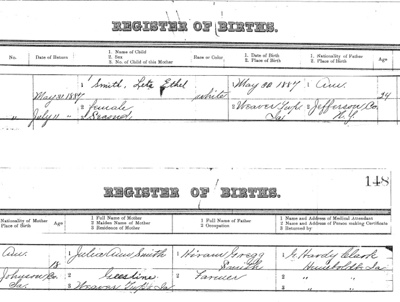 REGISTER OF BIRTHS.
No. Date of Return 1. Name of Child 2. Sex 3. No. of Child of this Mother Race or Color 1. Date of Birth 2. Place of Birth 1. Nationality of Father 2. Place of Birth Age
1 Smith, Leta Ethel 1 May 30 1887 1 Am.
May 31 1887 white 24
2 female 2 Weaver Twp. 2 Jefferson Co
" July 11 " 3 Second Ia N.Y.
148
REGISTER OF BIRTHS.
Nationality of Mother Place of Birth Age 1 Full Name of Mother 2 Maiden Name of Mother 3 Residence of Mother 1 Full Name of Father 2 Occupation 1 Name and Address of Medical Attendant 2 Name and Address of Person making Certificate 3 Returned by
Am. 1 Julia Ann Smith 1 Hiram Gregg 1 G. Hardy Clark
18 Smith Humboldt Ia
Johnson Co 2 2 Farmer 2 " "
Ia. 3 Weaver Twp. Ia 3 " "